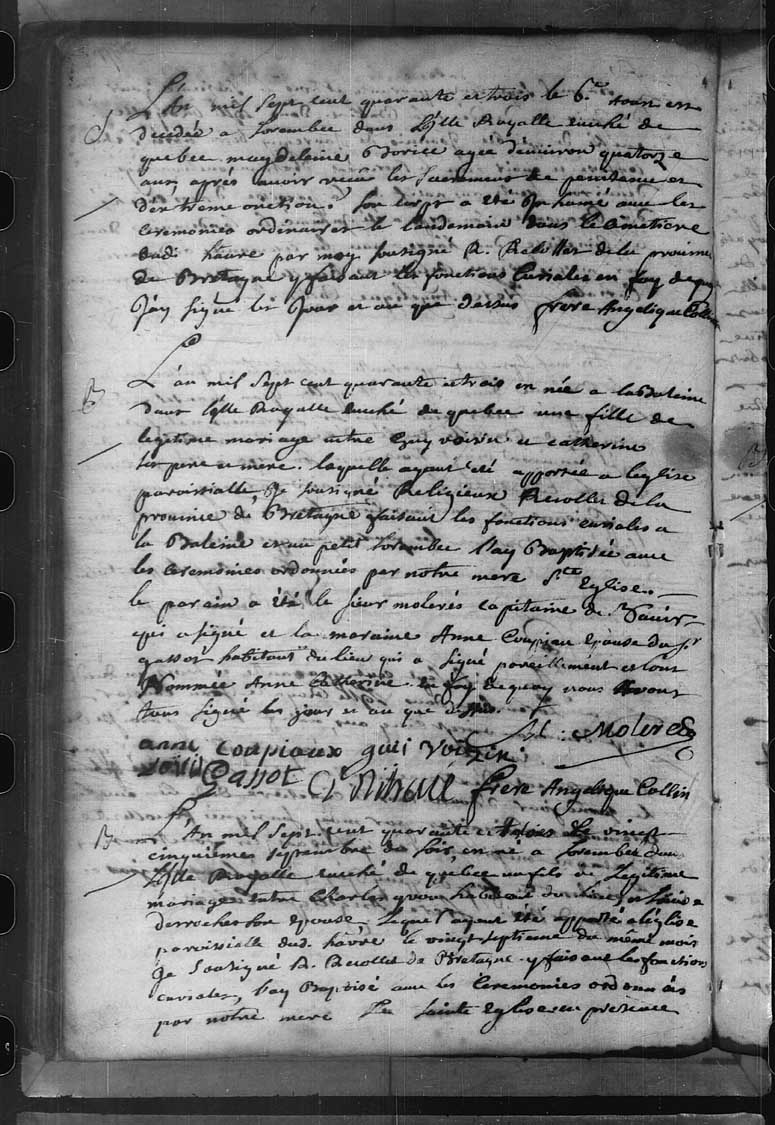 L'An mil sept cent quarante et trois le 6.e Aoust est
decedée a Lorembec dans L'isle Royalle evêché de
quebec magdelaine Borice agée d'environ quatorze
ans, aprés avoir reçue les sacrements de penitence et
d'extreme onction. son corps a été Inhumé avec les
ceremonies ordinaires le landemain dans le Cimetiere
dudi hâvre par moy sousigné R. Recollet de la province
de Bretagne y faisant les fonctions Curiales en foy de quoy
J'ay signé les Jour et an que dessus frere Angelique Collin
B
L'an mil sept cent quarante et trois en née a la Baleine
dans l'isle Royalle evêché de quebec une fille de
legitime mariage entre Guy voisin et catherine
ses pere et mere. laquelle ayant été apportée a l'eglise
paroissialle, Je sousigné Religieux Recollet de la
province de Bretagne faisant les fonctions curiales a
la Baleine et au petit Lorembec l'ay Baptisée avec
les ceremonies ordonnées par notre mere Ste Eglise.
le parain a été le sieur molerés capitaine de
qui a signé et la maraine Anne Coupiau epouse du sr
gassot habitant du lieu qui a signé pareillement et l'ont
Nommée Anne Catherine en foy de quoy nous avons
tous signé les jour et an que dessus.
anne coupiaux gui voisin Moleres
Gassot frere Angelique Collin
B
L'An mil sept cent quarante et trois Le vingt
cinquiéme septembre du soir, en né a Lorembec dans
L'isle Royalle evêché de quebec un fils de Legitime
mariage entre Charles yvon habitant du lieu et Louise
derroches son epouse Lequel ayant été apporté a l'Eglise
paroissialle dud. hâvre le vingt septieme du même mois
Je sousigné R. Recollet de Bretagne y faisant les fonctions
curiales, l'ay Baptisé avec les Ceremonies ordonnées
par notre mere La sainte Eglise en presence